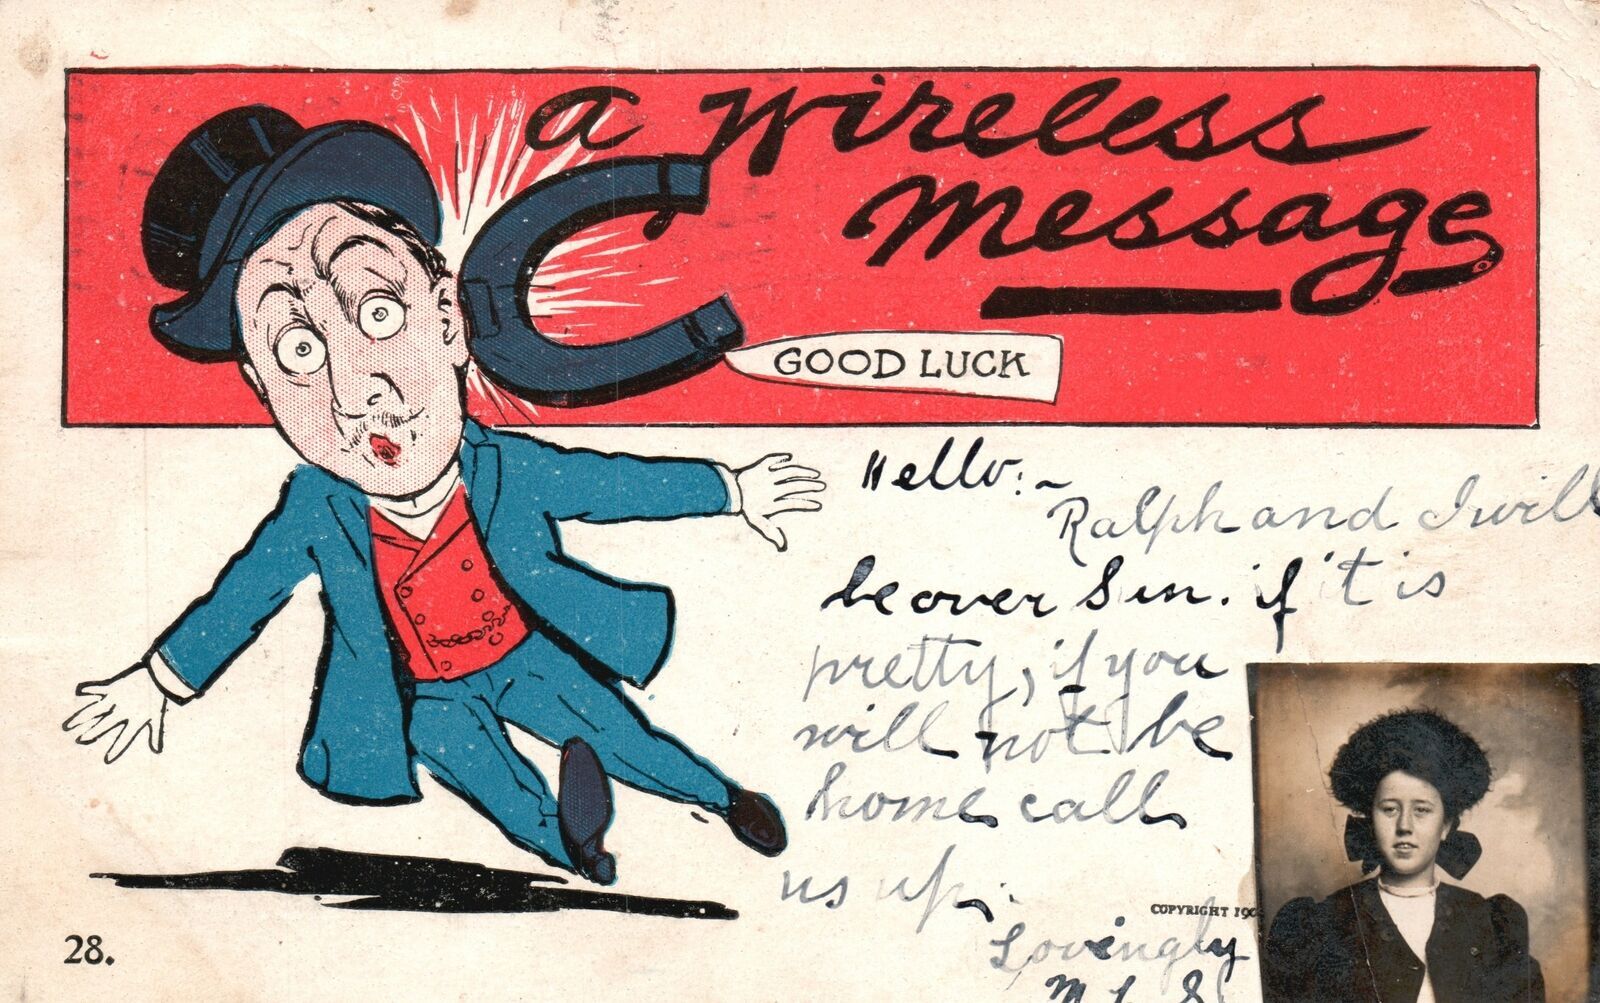 a wireless
message
GOOD LUCK
Hello:~
Ralph and I will
be over Sun. if it is
pretty, if you
will not be
home call
us up.
COPYRIGHT 190
Lovingly
M
28.